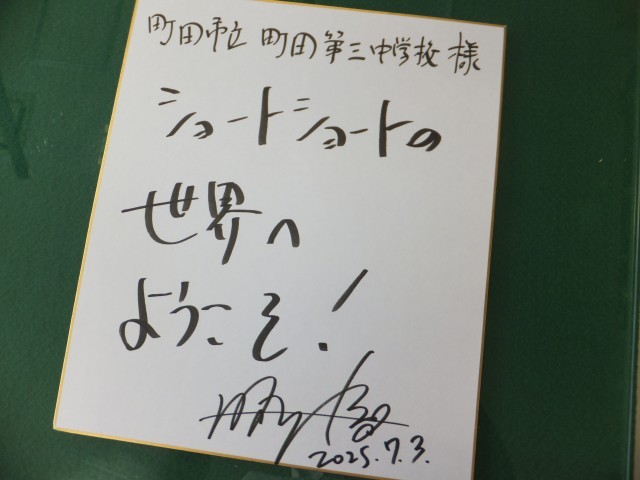 町田市立 町田第三中学校 様
ショートショートの
世界へ
ようこそ!
2025.7.3.